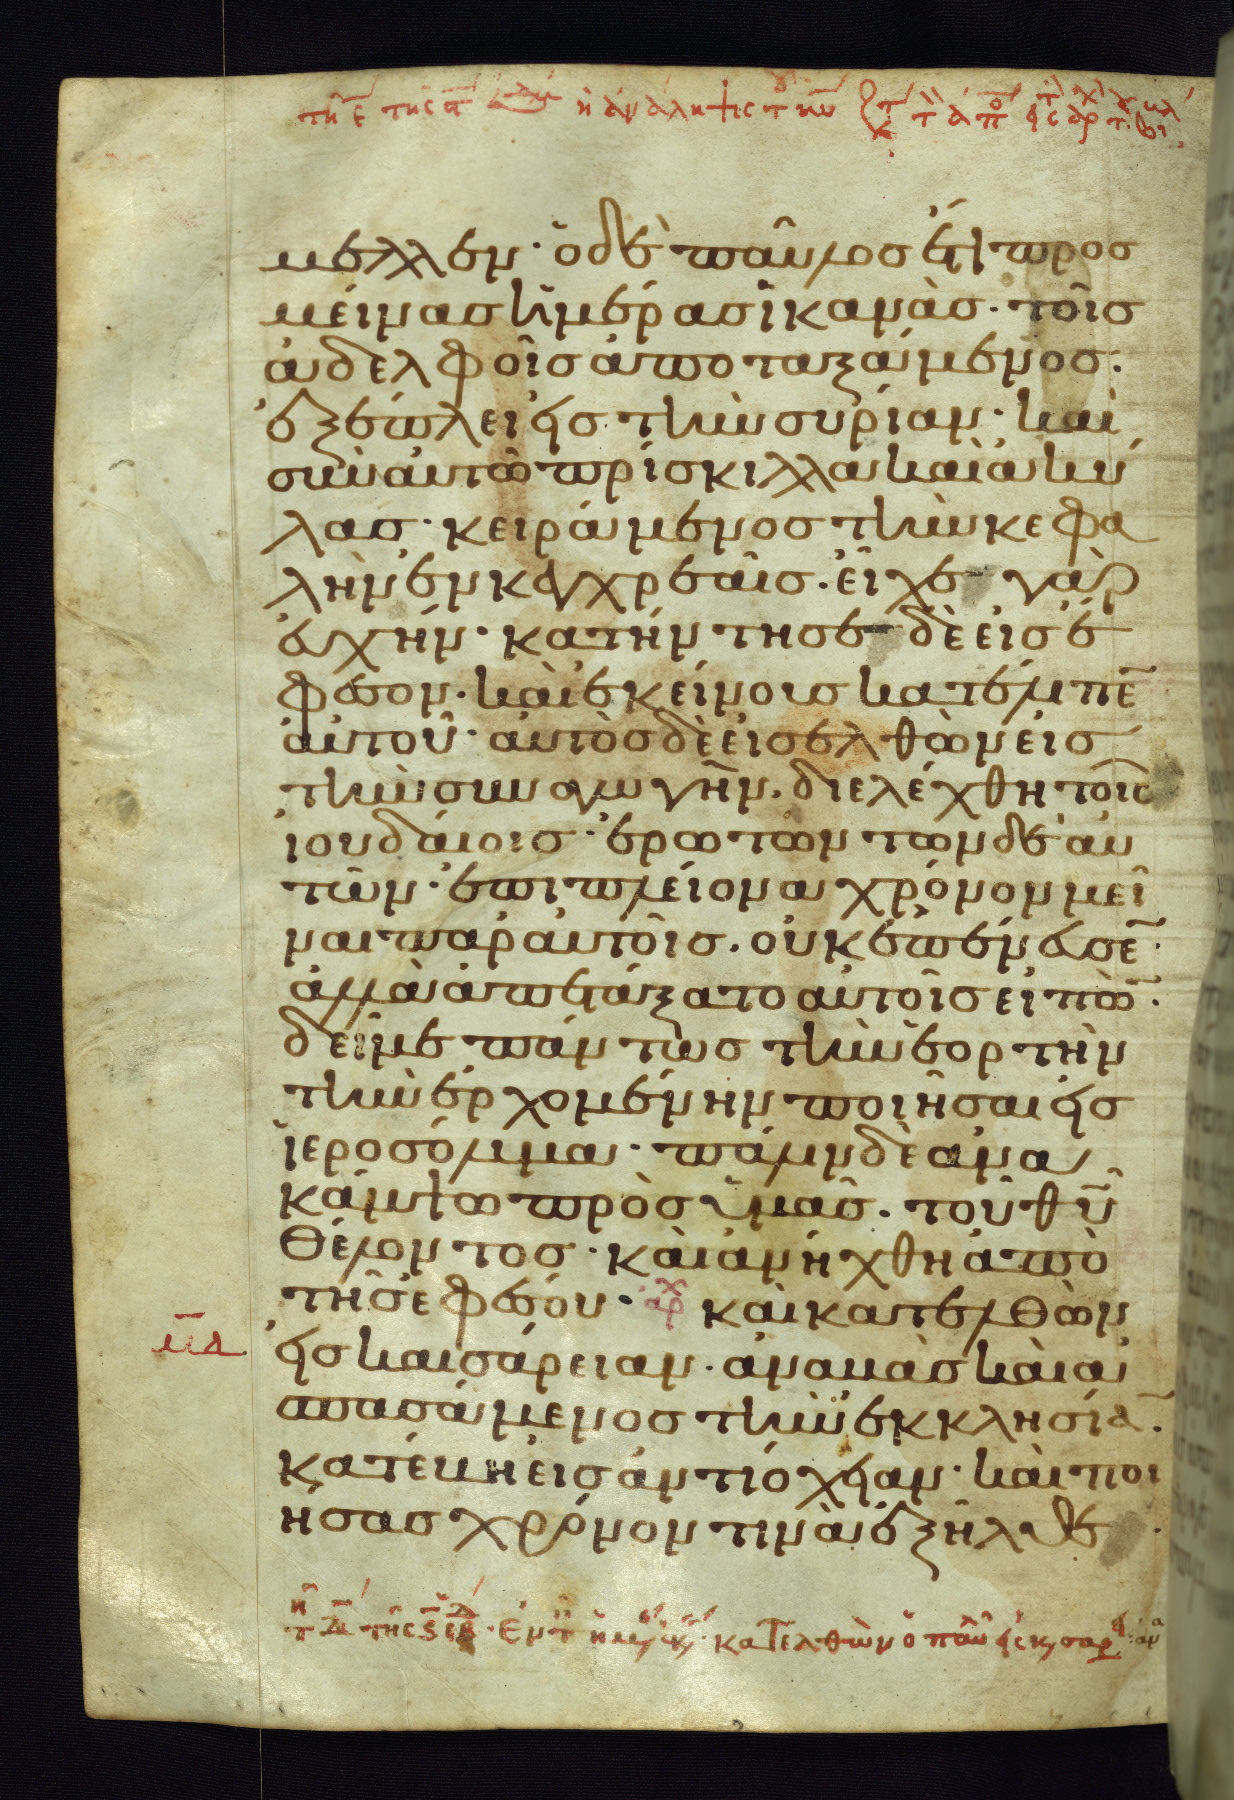 τῆ ε τῆς ἡ ἀνάληψις
μελλεν· ὁ δὲ παῦλος ἔτι προσ
μείνας ἡμέρας ἱκανὰς· τοῖς
ἀδελφοῖς ἀποταξάμενος·
ἐξέπλει εἰς τὴν συρίαν· καὶ
σὺν αὐτῶ πρίσκιλλα καὶ ἀκύ
λας· κειράμενος τὴν κεφα
λὴν ἐν κεγχρεαῖς· εἶχε γὰρ
εὐχήν· κατήντησε δὲ εἰς ἔ
φεσον· καὶ ἐκείνους κατέλιπε̄
αὐτοῦ· αὐτὸς δὲ εἰσελθὼν εἰς
τὴν συναγωγὴν· διελέχθη τοῖς
ἰουδαίοις· ἐρωτώντων δὲ αὐ
τῶν· ἐπι πλείονα χρόνον μεῖ
ναι παρ αὐτοῖς· οὐκ ἐπένευσε̄·
ἀλλὰ ἀπετάξατο αὐτοῖς εἰπὼ̄·
δεῖ με πάντως τὴν ἑορτὴν
τὴν ἐρχομένην ποιῆσαι εἰς
ἱεροσόλυμα· πάλιν δὲ ἀνα
κάμψω πρὸς ὑμᾶς· τοῦ θῡ
θέλοντος· καὶ ἀνήχθη ἀπὸ
τῆς ἐφέσου· ἀρχ καὶ κατελθὼν
εἰς καισάρειαν· ἀναβὰς καὶ ἀ
σπασάμενος τὴν ἐκκλησίᾱ·
κατέβη εἰς ἀντιόχειαν· καὶ ποι
ήσας χρόνον τινὰ ἐξῆλθε
τῆς κατελθὼν ὁ παῦ εἰς